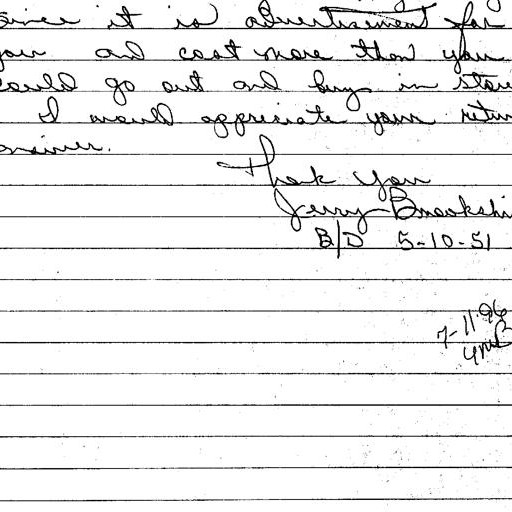 since it is advertisement for
your ad cost more than you
could go out and buy in store
I would appreciate your return
answer.
Thank You
Jerry Brookshi
B/D 5-10-51
7-11-96